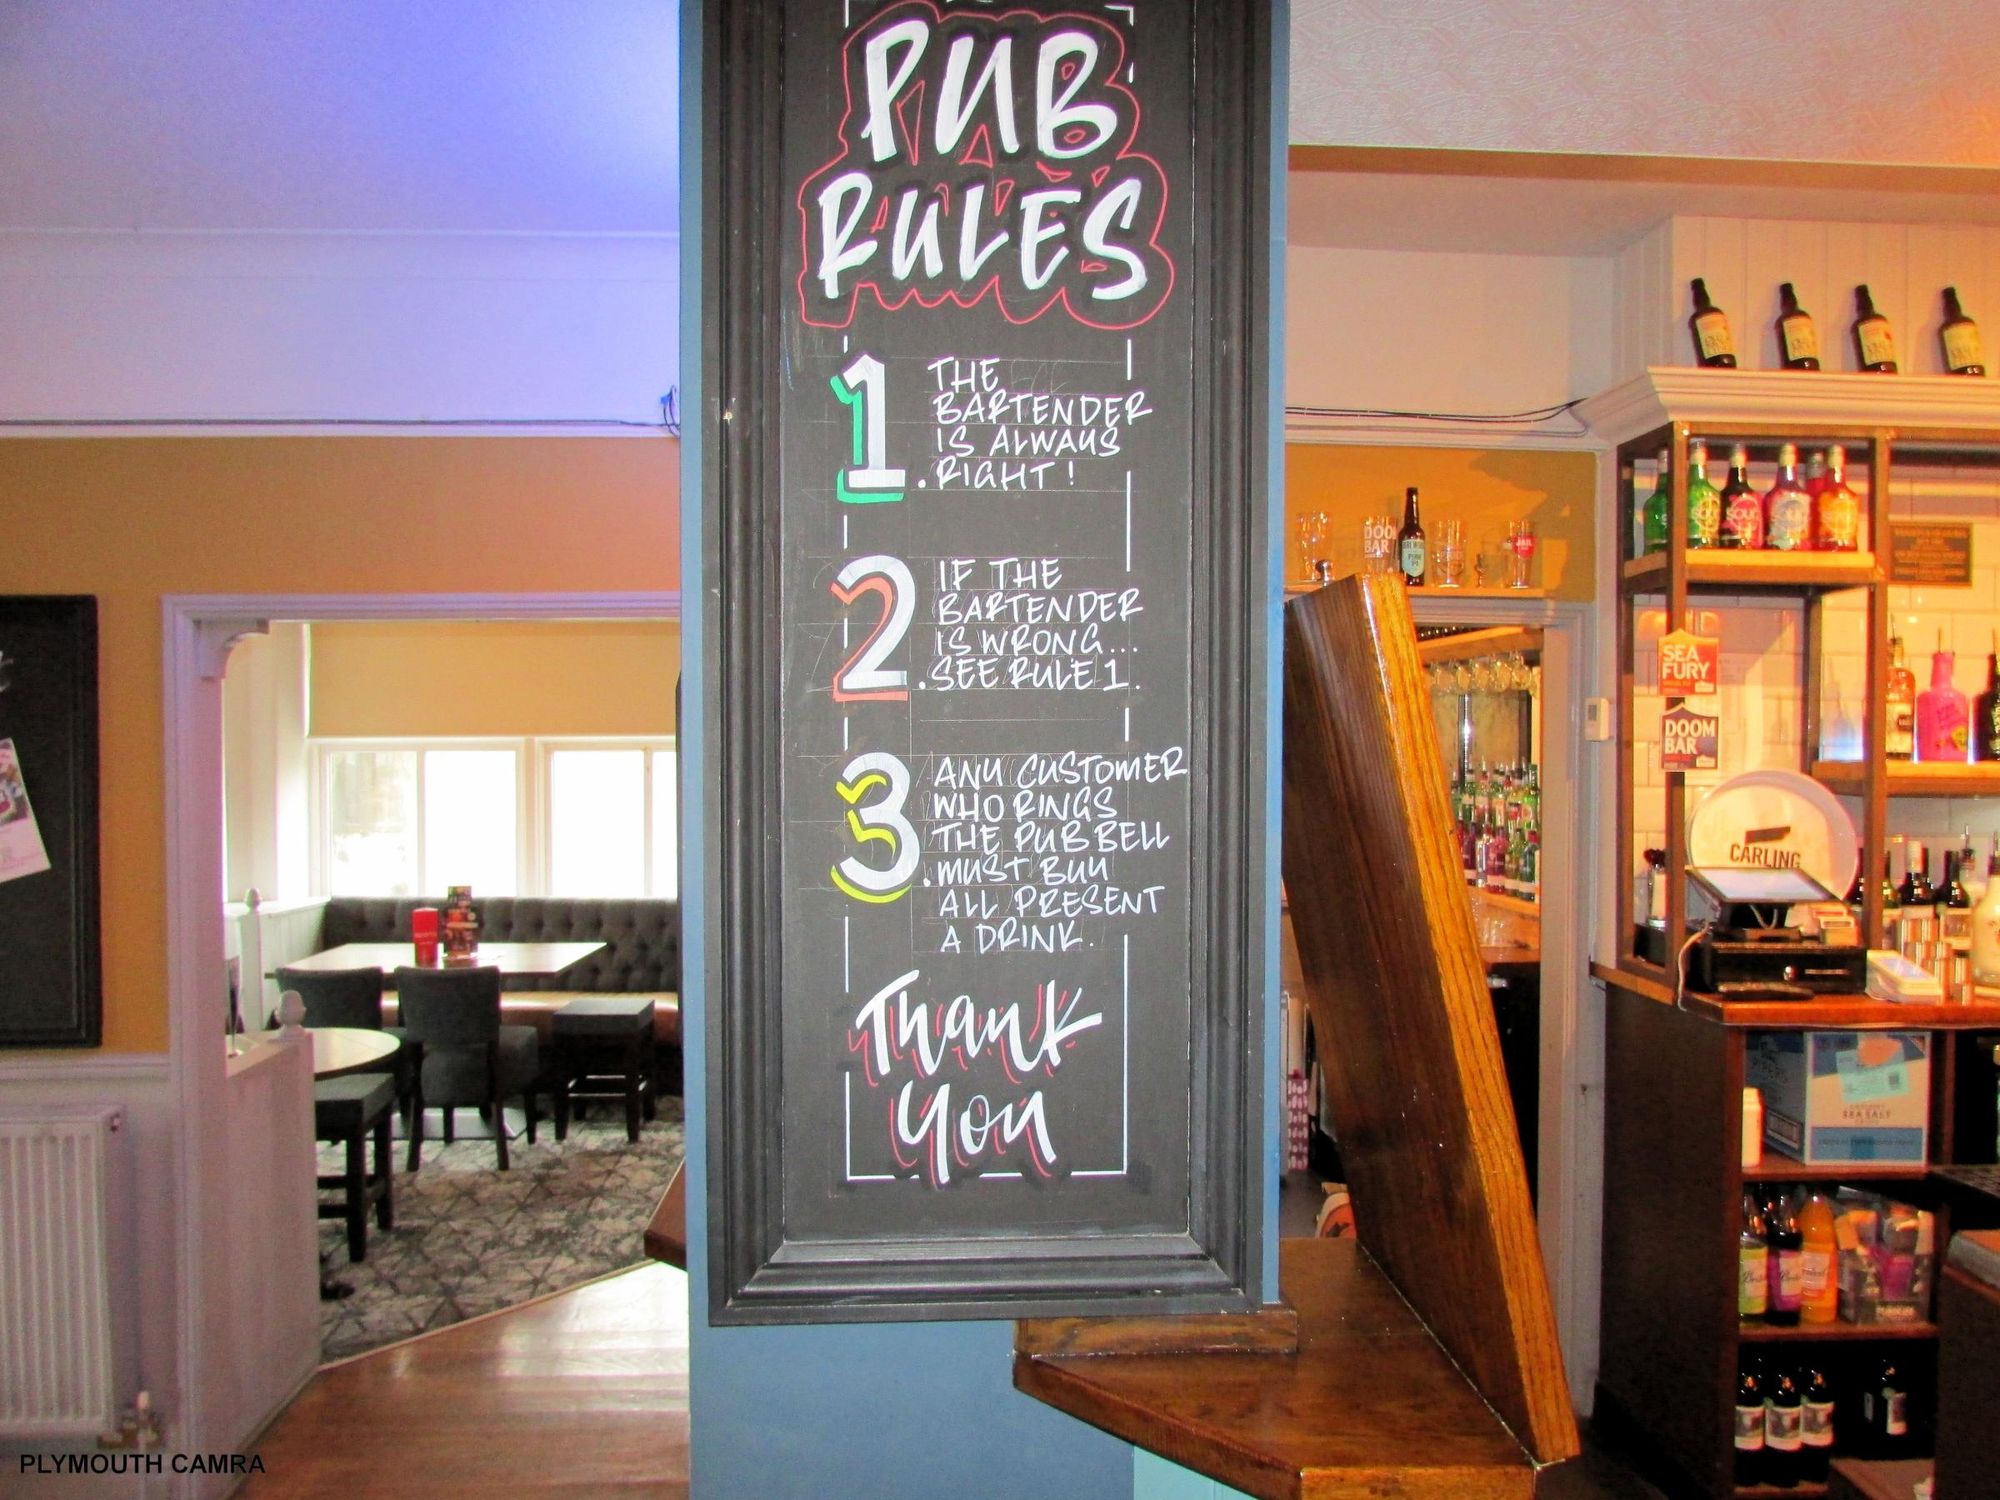 PUB
RULES
1. THE
BARTENDER
IS ALWAYS
RIGHT!
2. IF THE
BARTENDER
IS WRONG...
SEE RULE 1.
3. ANY CUSTOMER
WHO RINGS
THE PUB BELL
MUST BUY
ALL PRESENT
A DRINK.
Thank
you
DOOM
BAR
SEA
FURY
DOOM
BAR
CARLING
SEA SALT
PLYMOUTH CAMRA